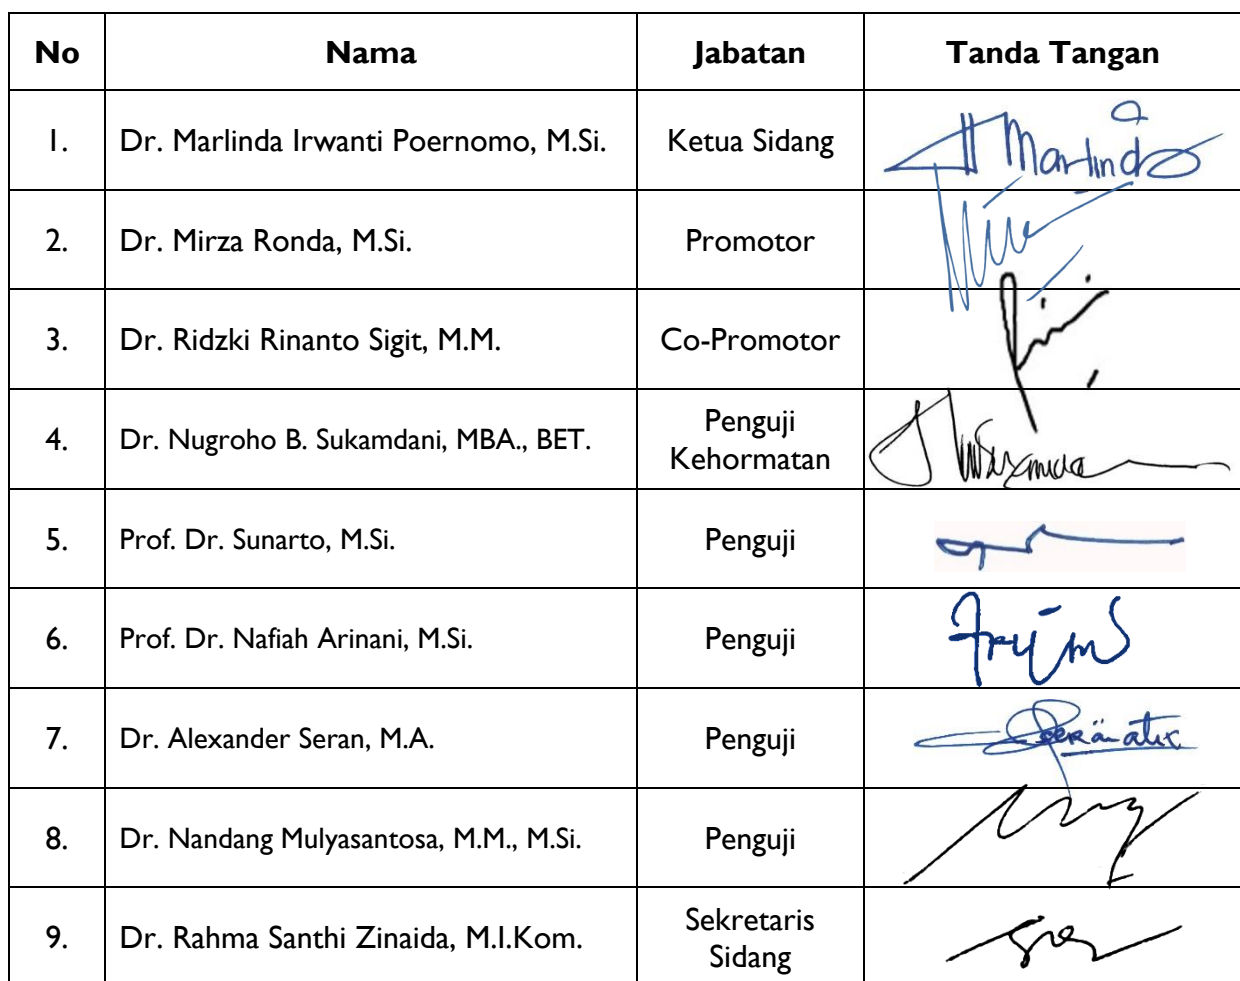 No Nama Jabatan Tanda Tangan
1. Dr. Marlinda Irwanti Poernomo, M.Si. Ketua Sidang Marlinda
2. Dr. Mirza Ronda, M.Si. Promotor
3. Dr. Ridzki Rinanto Sigit, M.M. Co-Promotor
4. Dr. Nugroho B. Sukamdani, MBA., BET. Penguji
Kehormatan
5. Prof. Dr. Sunarto, M.Si. Penguji
6. Prof. Dr. Nafiah Arinani, M.Si. Penguji
7. Dr. Alexander Seran, M.A. Penguji
8. Dr. Nandang Mulyasantosa, M.M., M.Si. Penguji
9. Dr. Rahma Santhi Zinaida, M.I.Kom. Sekretaris
Sidang